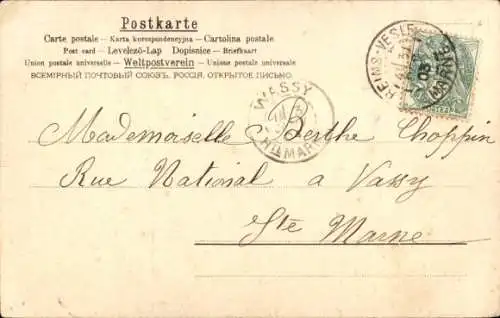 Postkarte
Carte postale - Karta korespondencyjna - Cartolina postale
Post card - Levelező-Lap Dopisnice - Briefkaart
Union postale universelle - Weltpostverein - Unione postale universale
ВСЕМІРНЫЙ ПОЧТОВЫЙ СОЮЗЪ. РОССІЯ. ОТКРЫТОЕ ПИСЬМО.
REIMS-VESLE
03
MARNE
WASSY
HTE MARNE
Mademoiselle Berthe Choppin
Rue National a Vassy
Hte Marne